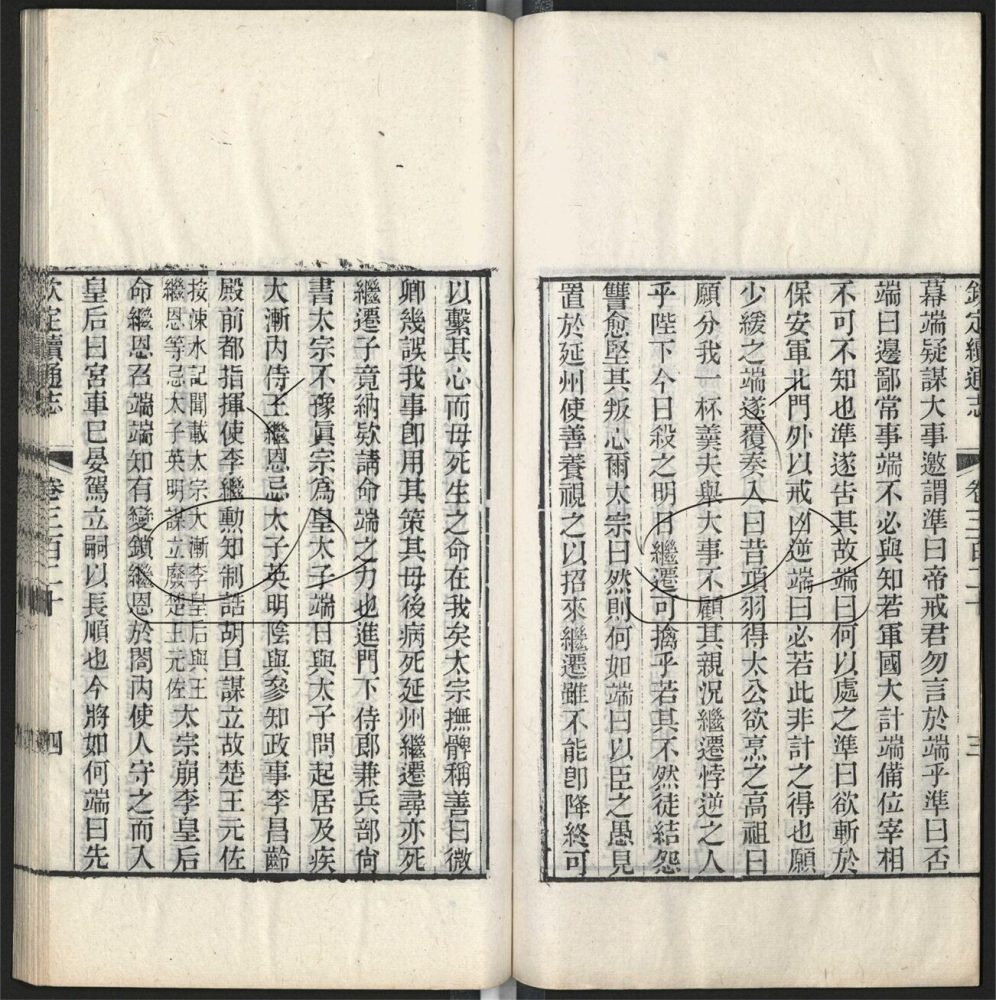 欽定續通志
卷三百二十
三
幕端疑謀大事邀謂準曰帝戒君勿言於端乎準曰否
端曰邊鄙常事端不必與知若軍國大計端備位宰相
不可不知也準遂告其故端曰何以處之準曰欲斬於
保安軍北門外以戒凶逆端曰必若此非計之得也願
少緩之端遂覆奏入曰昔項羽得太公欲烹之高祖曰
願分我一杯羹夫舉大事不顧其親況繼遷悖逆之人
乎陛下今日殺之明日繼遷可擒乎若其不然徒結怨
讐愈堅其叛心爾太宗曰然則何如端曰以臣之愚見
置於延州使善養視之以招來繼遷雖不能卽降終可
以繫其心而母死生之命在我矣太宗撫髀稱善曰微
卿幾誤我事卽用其策其母後病死延州繼遷尋亦死
繼遷子竟納欵請命端之力也進門下侍郎兼兵部尙
書太宗不豫眞宗爲皇太子端日與太子問起居及疾
大漸內侍王繼恩忌太子英明陰與參知政事李昌齡
殿前都指揮使李繼勳知制誥胡旦謀立故楚王元佐
按涑水記聞載太宗大漸李皇后與王
繼恩等忌太子英明謀立廢楚王元佐
太宗崩李皇后
命繼恩召端端知有變鎖繼恩於閤內使人守之而入
皇后曰宮車已晏駕立嗣以長順也今將如何端曰先
欽定續通志
卷三百二十
四